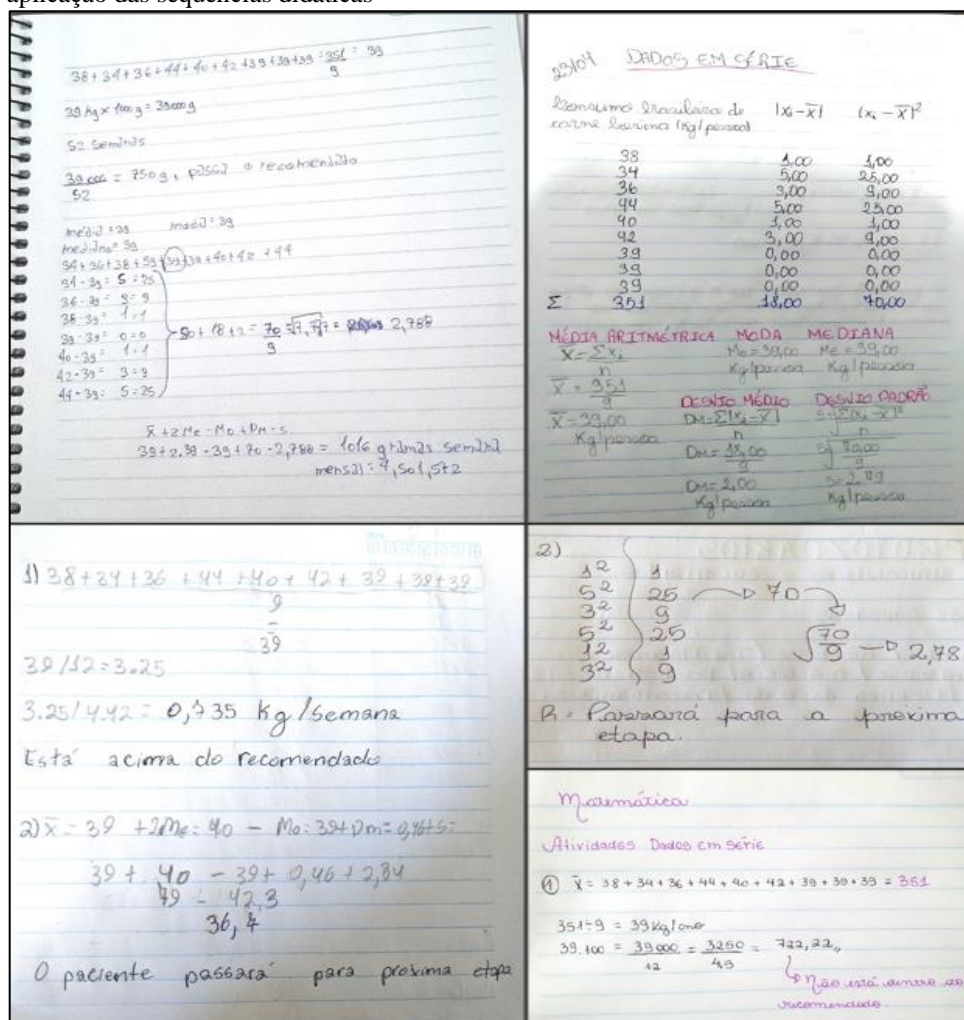 aplicação das sequências didáticas
38+34+36+44+40+42+39+39+39 = 351 = 39
9
39 kg x 1000 g = 39000 g
52 semanas
39 000 = 750 g, passa o recomendado
52
média = 39 moda = 39
mediana = 39
34+36+38+39+39+39+40+42+44
34-39 = 5 = 25
36-39 = 3 = 9
38-39 = 1 = 1
39-39 = 0 = 0
40-39 = 1 = 1
42-39 = 3 = 9
44-39 = 5 = 25
50+18+2 = 70 = √7,77 = 2,788
9
x̄ + 2Me - Mo + DM - s
39+2.39-39+70-2,788 = 1016 gramas semana
mensal =
23/04 DADOS EM SÉRIE
Consumo brasileiro de |xi-x̄| (xi-x̄)²
carne bovina (Kg/pessoa)
38 1,00 1,00
34 5,00 25,00
36 3,00 9,00
44 5,00 25,00
40 1,00 1,00
42 3,00 9,00
39 0,00 0,00
39 0,00 0,00
39 0,00 0,00
Σ 351 18,00 70,00
MÉDIA ARITMÉTRICA MODA MEDIANA
x̄ = Σxi Mo = 39,00 Me = 39,00
n Kg/pessoa Kg/pessoa
x̄ = 351
9 DESVIO MÉDIO DESVIO PADRÃO
x̄ = 39,00 DM = Σ|xi-x̄| s = √Σ(xi-x̄)²
Kg/pessoa n n
DM = 18,00 s = √70,00
9 9
DM = 2,00 s = 2,79
Kg/pessoa Kg/pessoa
1) 38+34+36+44+40+42+39+39+39
9
=
39
39/12 = 3.25
3.25/4.42 = 0,735 Kg/semana
Está acima do recomendado
2) x̄ = 39 + 2Me = 40 - Mo = 39 + Dm = 0,46 + S =
39 + 40 - 39 + 0,46 + 2,84
79 - 42,3
36,7
O paciente passará para próxima etapa
2)
1² 1
5² 25 → 70
3² 9
5² 25 √70/9 → 2,78
1² 1
3² 9
R = Passará para a próxima
etapa.
Matemática
Atividades Dados em Série
① x̄ = 38+34+36+44+40+42+39+39+39 = 351
351÷9 = 39 kg/ano
39.100 = 39000 = 3250 = 722,22
12 4,5
Não está dentro do
recomendado.